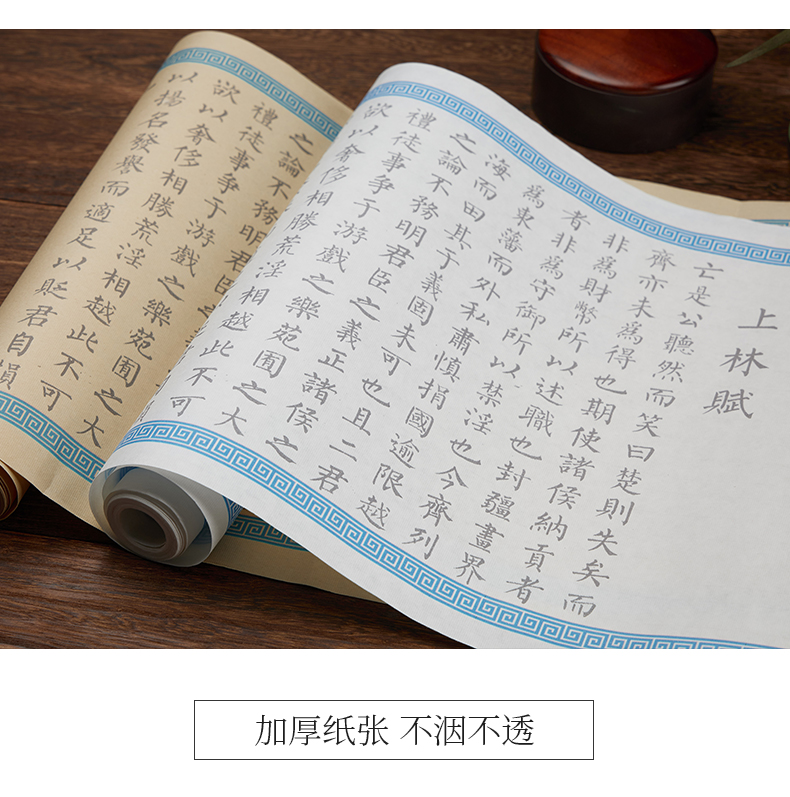 上林賦
亡是公聽然而笑曰楚則失矣而
齊亦未爲得也期使諸侯納貢者
非爲財幣所以述職也封疆畫界
者非爲守御所以禁淫也今齊列
爲東藩而外私肅慎捐國逾限越
海而田其于義固未可也且二君
之論不務明君臣之義正諸侯之
禮徒事爭于游戲之樂苑囿之大
欲以奢侈相勝荒淫相越此不可
之論不務明君臣
禮徒事爭于游戲之樂苑囿之大
欲以奢侈相勝荒淫相越此不可
以揚名發譽而適足以貶君自損
加厚纸张 不洇不透